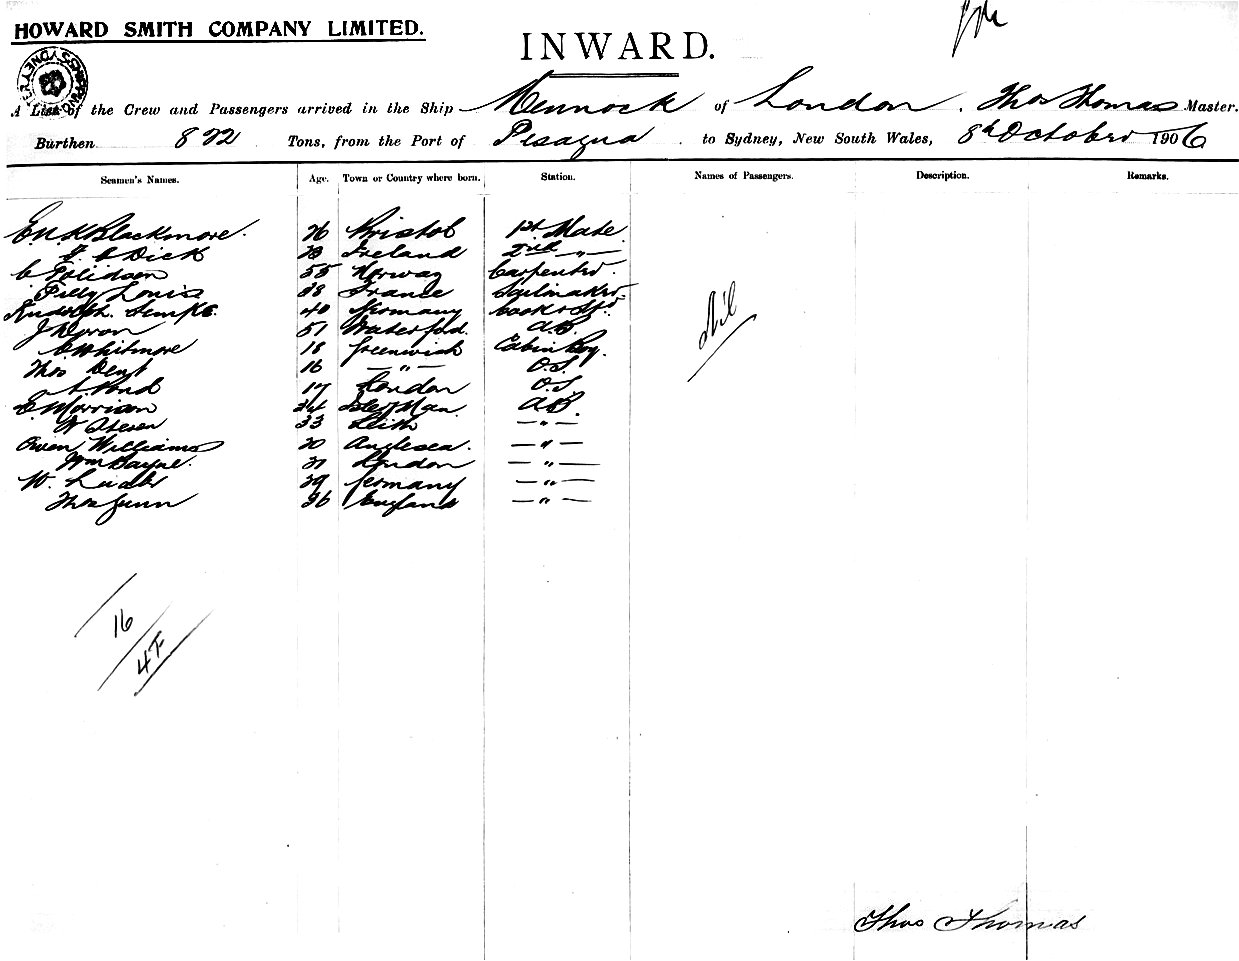 HOWARD SMITH COMPANY LIMITED.
INWARD.
A List of the Crew and Passengers arrived in the Ship Mennock of London. Thos Thomas Master.
Burthen 822 Tons, from the Port of Pisagua to Sydney, New South Wales, 8th October 1906
Seamen's Names. Age. Town or Country where born. Station. Names of Passengers. Description. Remarks.
Blackmore. 26 Bristol 1st Mate
Dick Ireland 2nd "
C 55 Norway Carpenter.
Louis 38 France Sailmaker
Rudolph 40 Germany Cook & Std.
J Doran 51 Waterford. A.B.
C Whitmore 18 Greenwich Cabin Boy.
Thos Dent 16 — " — O.S.
A. Pond 17 London O.S.
E Morrison 24 Isle of Man A.B.
W 33 Leith — " —
Owen Williams 20 Anglesea. — " —
Wm Bayne. 21 London — " —
W. 29 Germany — " —
Thos Gunn 36 England — " —
Nil
16
Thos Thomas